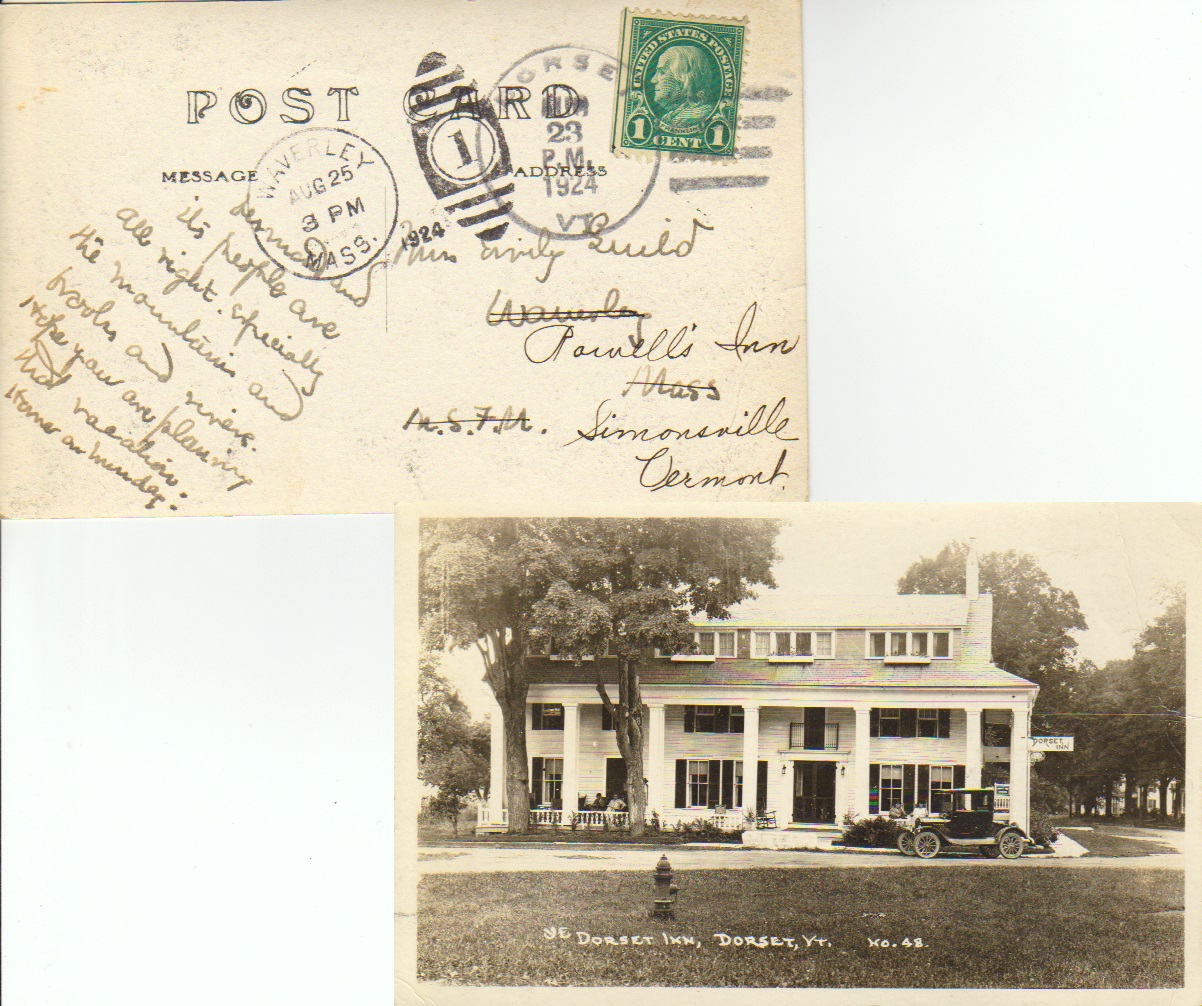 POST CARD
MESSAGE
ADDRESS
WAVERLEY
AUG 25
3 PM
MASS.
1924
1
DORSET
AUG
23
P.M.
1924
VT.
UNITED STATES POSTAGE
FRANKLIN
1 CENT 1
and
its people are
all right. specially
the mountains and
brooks and rivers.
Hope you are planning
that vacation.
Home on Monday.
Miss Emily Guild
Waverley
Powell's Inn
Mass
M.S.F.M.
Simonsville
Vermont.
DORSET
INN
YE DORSET INN, DORSET, VT. NO. 48.